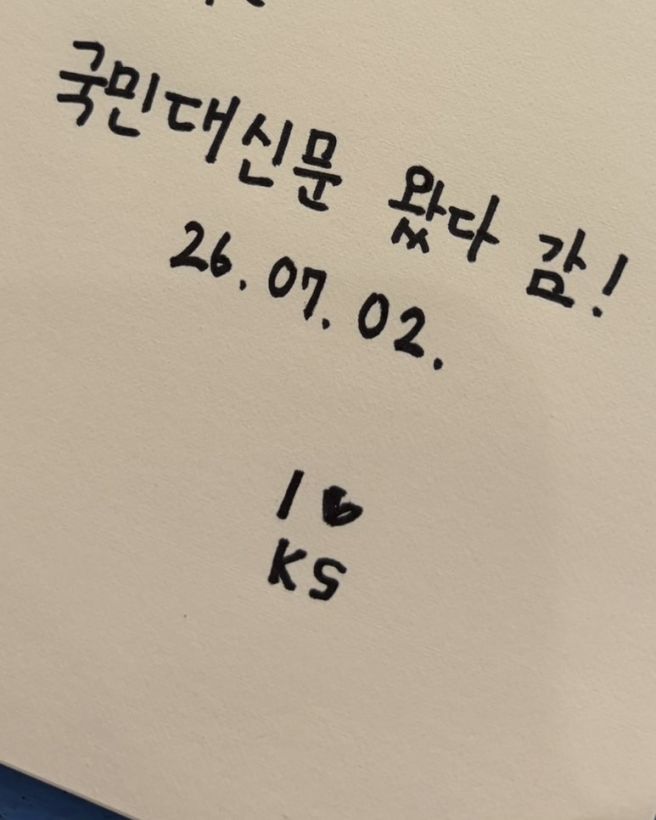 국민대신문 왔다 감!
26.07.02.
I ♥
KS